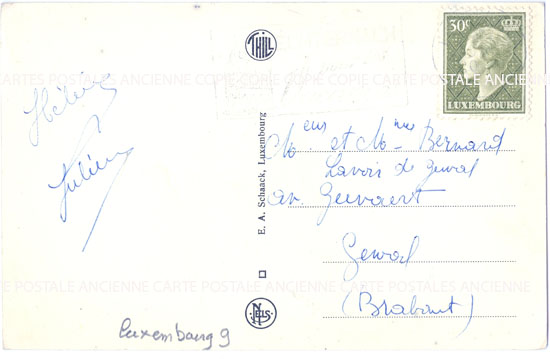 Hélène
Julien
THILL
E. A. Schaack, Luxembourg
NELS
30c
LUXEMBOURG
Meur et Mme Bernard
Lavois de Genval
av. Gevaert
Genval
(Brabant)
Luxembourg 9
CARTES POSTALES ANCIENNE COPIE COPIE COPIE CARTE POSTALE ANCIENNE
CARTE POSTALES ANCIENNE CARTE POSTALES ANCIENNE